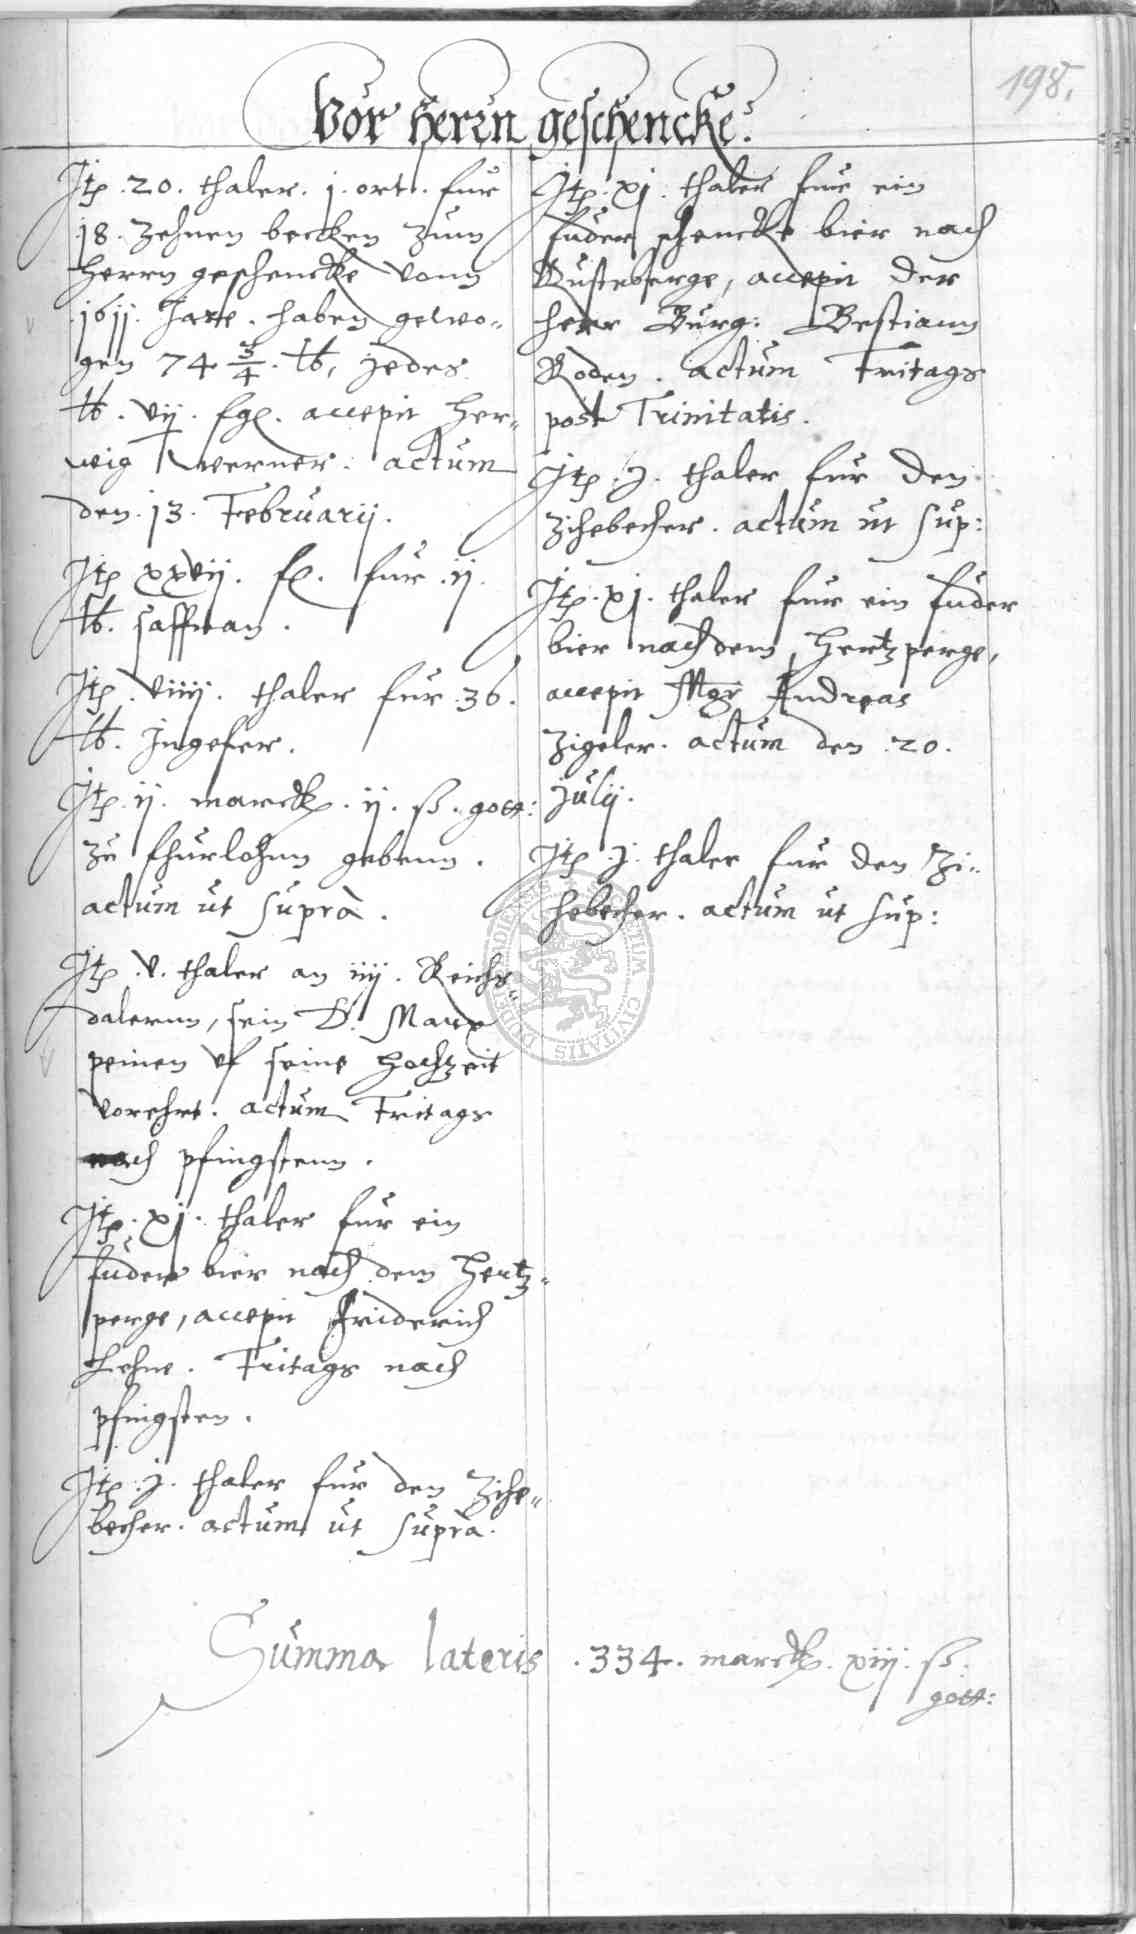 198.
Vor Herrn geschencke.
Itp. 20. thaler. j. ort. fur
18. Zehnen becken zum
Herrn geschencke vonn
1611. Jare. haben gewo-
gen 74 3/4. lb, jedes
lb. vij. sgl. accepit Her-
wig Werner. actum
den 13. Februarij.
Itp xxvij. fl. fur .ij.
lb. saffran.
Itp. viiij. thaler fur .36.
lb. Ingefer.
Itp. ij. marck. ij. ß. gott:
zu fhurlohnn gebenn.
actum ut suprà.
Itp .v. thaler an iiij. Reichs-
dalernn, sein D. Marx
peinen uf seine hochzeit
vorehrt. actum Fritags
nach pfingstenn.
Itp. xj. thaler fur ein
fuder bier nach dem Hertz-
perge, accepit Friderich
Lehne. Fritags nach
pfingsten.
Itp. j. thaler fur den Zihe-
becher. actum ut suprà.
Itp. xj. thaler fur ein
fuder schencke bier nach
Rusteberge, accepit der
herr Burg: Bestiann
Roden. actum Fritags
post Trinitatis.
Itp. j. thaler fur den
Zihebecher. actum ut sup:
Itp. xj. thaler fur ein fuder
bier nach dem Hertzperge,
accepit Mgr Andreas
Zigeler. actum den .20.
Julij.
Itp. j. thaler fur den Zi-
hebecher. actum ut sup:
Summa lateris .334. marck. xiij. ß.
gott:
CIVITATIS